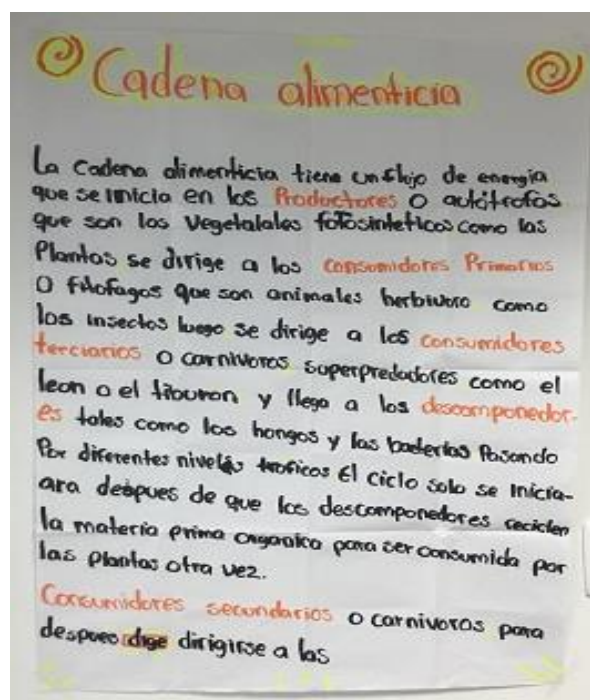 Cadena alimenticia
La Cadena alimenticia tiene un flujo de energia
que se inicia en los Productores O autótrofos
que son los Vegetalales fotosinteticos como las
Plantas se dirige a los consumidores Primarios
O filofagos que son animales herbivoro como
los insectos luego se dirige a los consumidores
terciarios O carnivoros superpredadores como el
leon o el tiburon y llega a los descomponedor-
es tales como los hongos y las bacterias Pasando
Por diferentes niveles troficos El ciclo solo se Inicia-
ara despues de que los descomponedores reciclen
la materia prima organica para ser consumida por
las Plantas otra vez.
Consumidores secundarios O carnivoros para
despues dige dirigirse a las